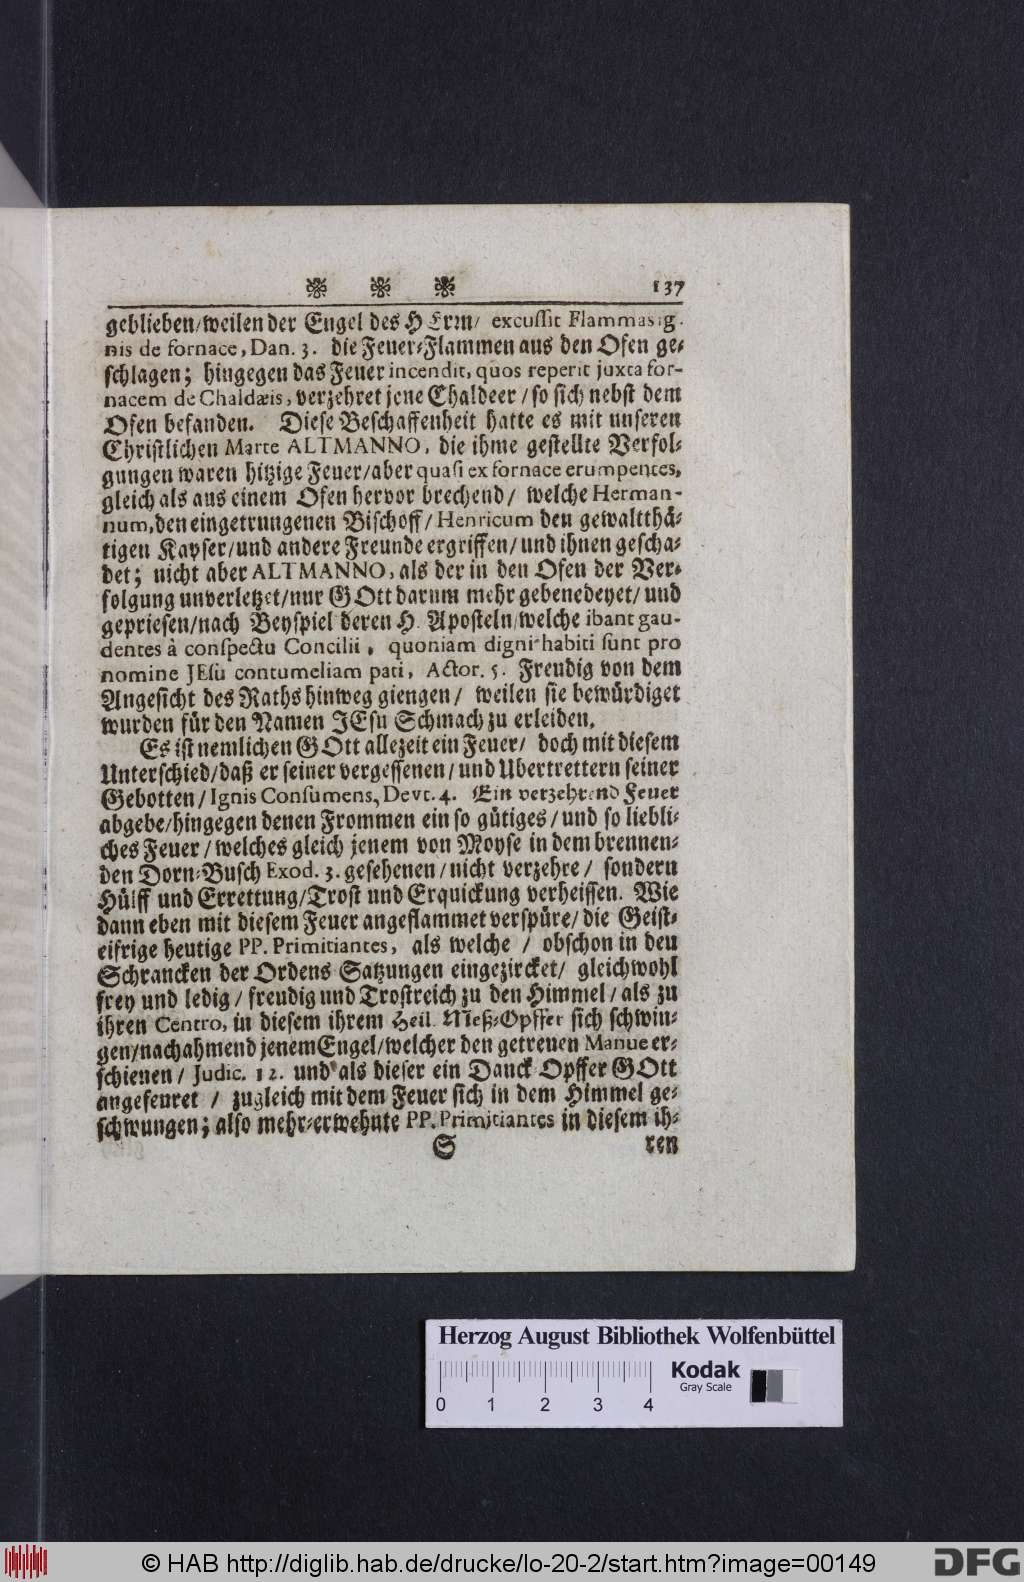 137
geblieben/weilen der Engel des HErrn/ excussit Flammas ig-
nis de fornace, Dan. 3. die Feuer-Flammen aus den Ofen ge-
schlagen; hingegen das Feuer incendit, quos reperit juxta for-
nacem de Chaldæis, verzehret jene Chaldeer / so sich nebst dem
Ofen befanden. Diese Beschaffenheit hatte es mit unseren
Christlichen Marte ALTMANNO, die ihme gestellte Verfol-
gungen waren hitzige Feuer/aber quasi ex fornace erumpentes,
gleich als aus einem Ofen hervor brechend/ welche Herman-
num, den eingetrungenen Bischoff/ Henricum den gewaltthä-
tigen Kayser/und andere Freunde ergriffen/und ihnen gescha-
det; nicht aber ALTMANNO, als der in den Ofen der Ver-
folgung unverletzet/nur GOtt darum mehr gebenedeyet/ und
gepriesen/nach Beyspiel deren H. Aposteln/welche ibant gau-
dentes à conspectu Concilii, quoniam digni habiti sunt pro
nomine JEsu contumeliam pati, Actor. 5. Freudig von dem
Angesicht des Raths hinweg giengen/ weilen sie bewürdiget
wurden für den Namen JEsu Schmach zu erleiden.
Es ist nemlichen GOtt allezeit ein Feuer/ doch mit diesem
Unterschied/daß er seiner vergessenen/und Ubertrettern seiner
Gebotten/ Ignis Consumens, Devt. 4. Ein verzehrend Feuer
abgebe/hingegen denen Frommen ein so gütiges/und so liebli-
ches Feuer/welches gleich jenem von Moyse in dem brennen-
den Dorn-Busch Exod. 3. gesehenen/nicht verzehre/ sondern
Hülff und Errettung/Trost und Erquickung verheissen. Wie
dann eben mit diesem Feuer angeflammet verspüre/ die Geist-
eifrige heutige PP. Primitiantes, als welche / obschon in den
Schrancken der Ordens Satzungen eingezircket/ gleichwohl
frey und ledig/ freudig und Trostreich zu den Himmel/als zu
ihren Centro, in diesem ihrem Heil. Meß-Opffer sich schwin-
gen/nachahmend jenem Engel/welcher den getreuen Manue er-
schienen/ Judic. 12. und als dieser ein Danck Opffer GOtt
angefeuret / zugleich mit dem Feuer sich in dem Himmel ge-
schwungen; also mehr-erwehnte PP. Primitiantes in diesem ih-
S ren
Herzog August Bibliothek Wolfenbüttel
Kodak
Gray Scale
0 1 2 3 4
© HAB http://diglib.hab.de/drucke/lo-20-2/start.htm?image=00149
DFG